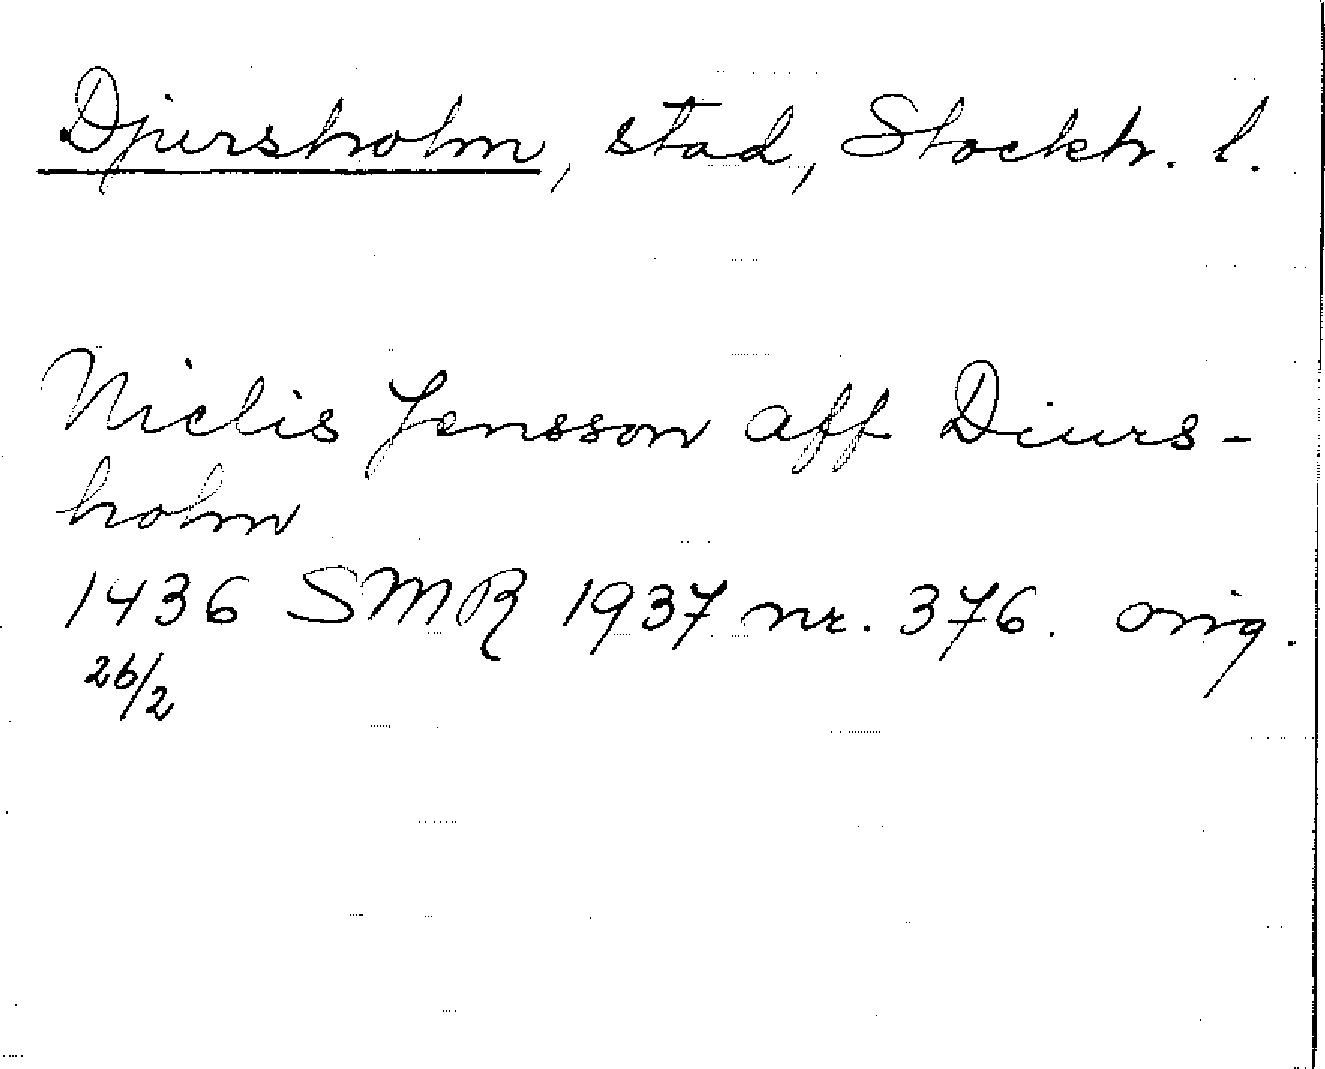 Djursholm, stad, Stockh. l.
Niclis Jensson aff Diurs-
holm
1436 SMR 1937 nr. 376. orig.
26/2